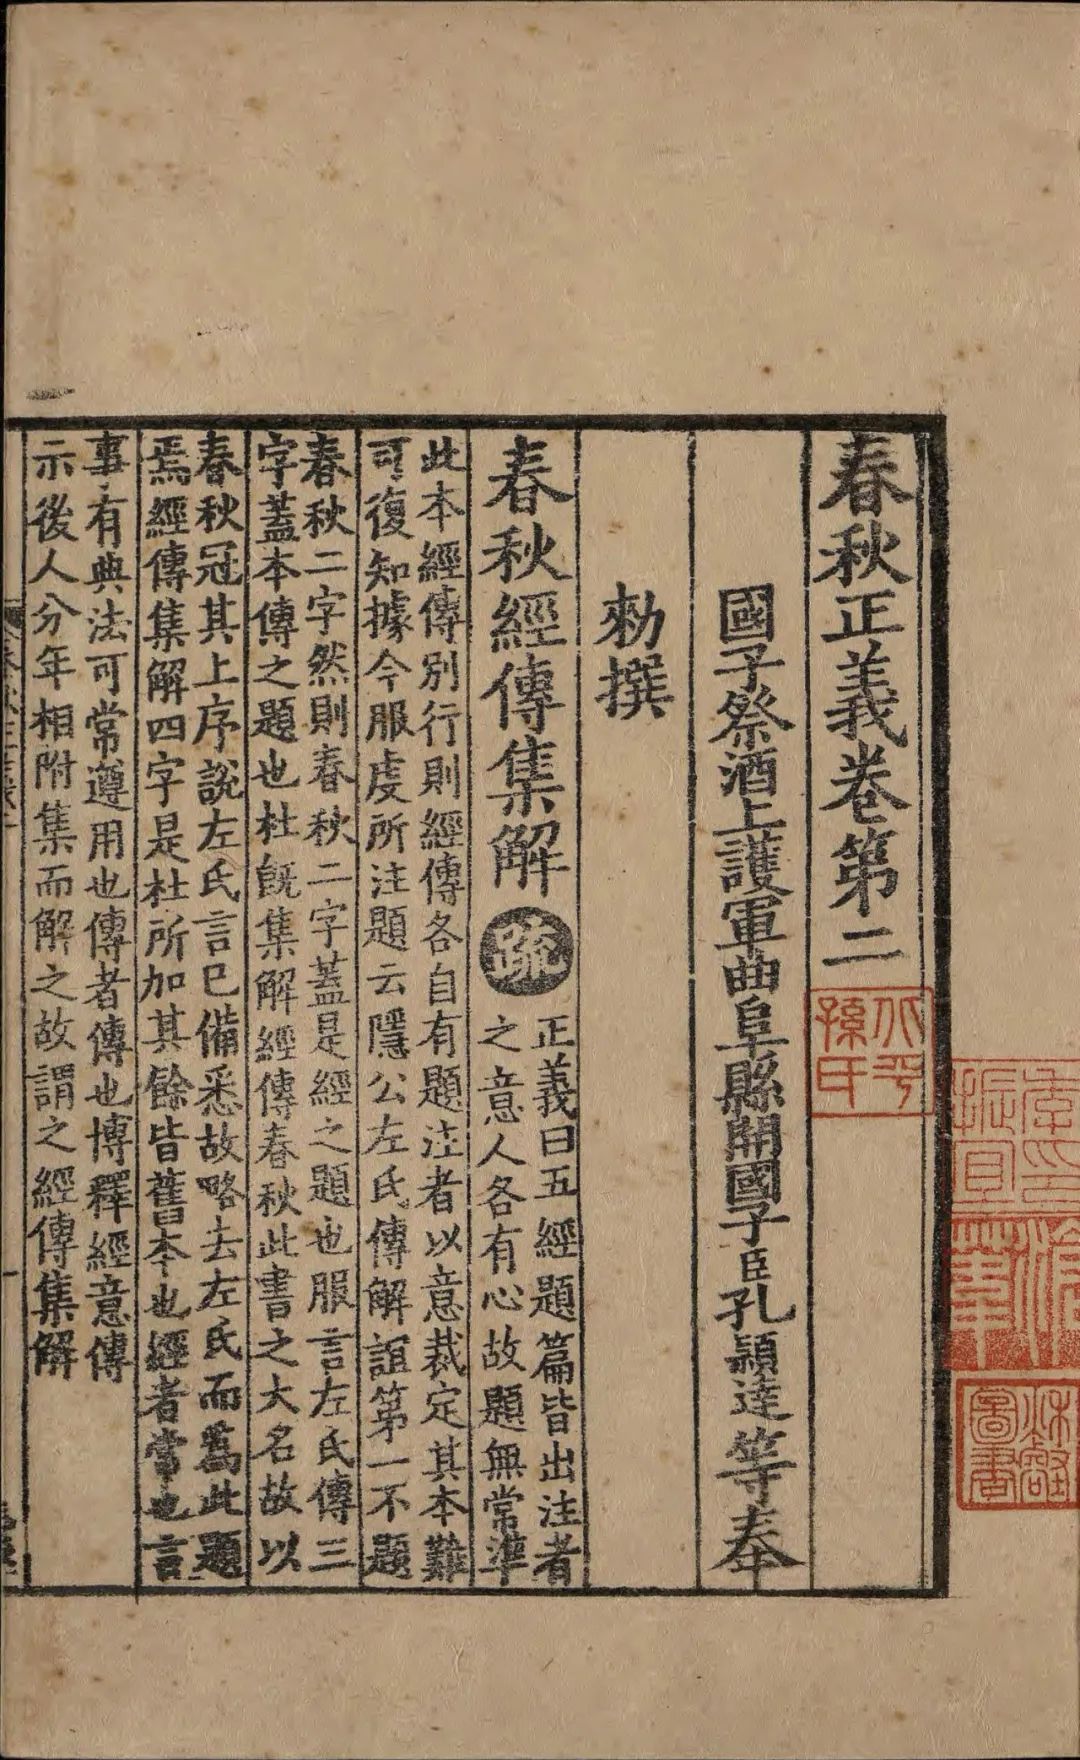 春秋正義卷第二
國子祭酒上護軍曲阜縣開國子臣孔穎達等奉
勑撰
春秋經傳集解
疏
正義曰五經題篇皆出注者
之意人各有心故題無常準
此本經傳別行則經傳各自有題注者以意裁定其本難
可復知據今服虔所注題云隱公左氏傳解誼第一不題
春秋二字然則春秋二字蓋是經之題也服言左氏傳三
字蓋本傳之題也杜旣集解經傳春秋此書之大名故以
春秋冠其上序說左氏言已備悉故略去左氏而爲此題
焉經傳集解四字是杜所加其餘皆舊本也經者常也言
事有典法可常遵用也傳者傳也博釋經意傳
示後人分年相附集而解之故謂之經傳集解
北平
孫氏
季印
振宜
滄
葦
圖書